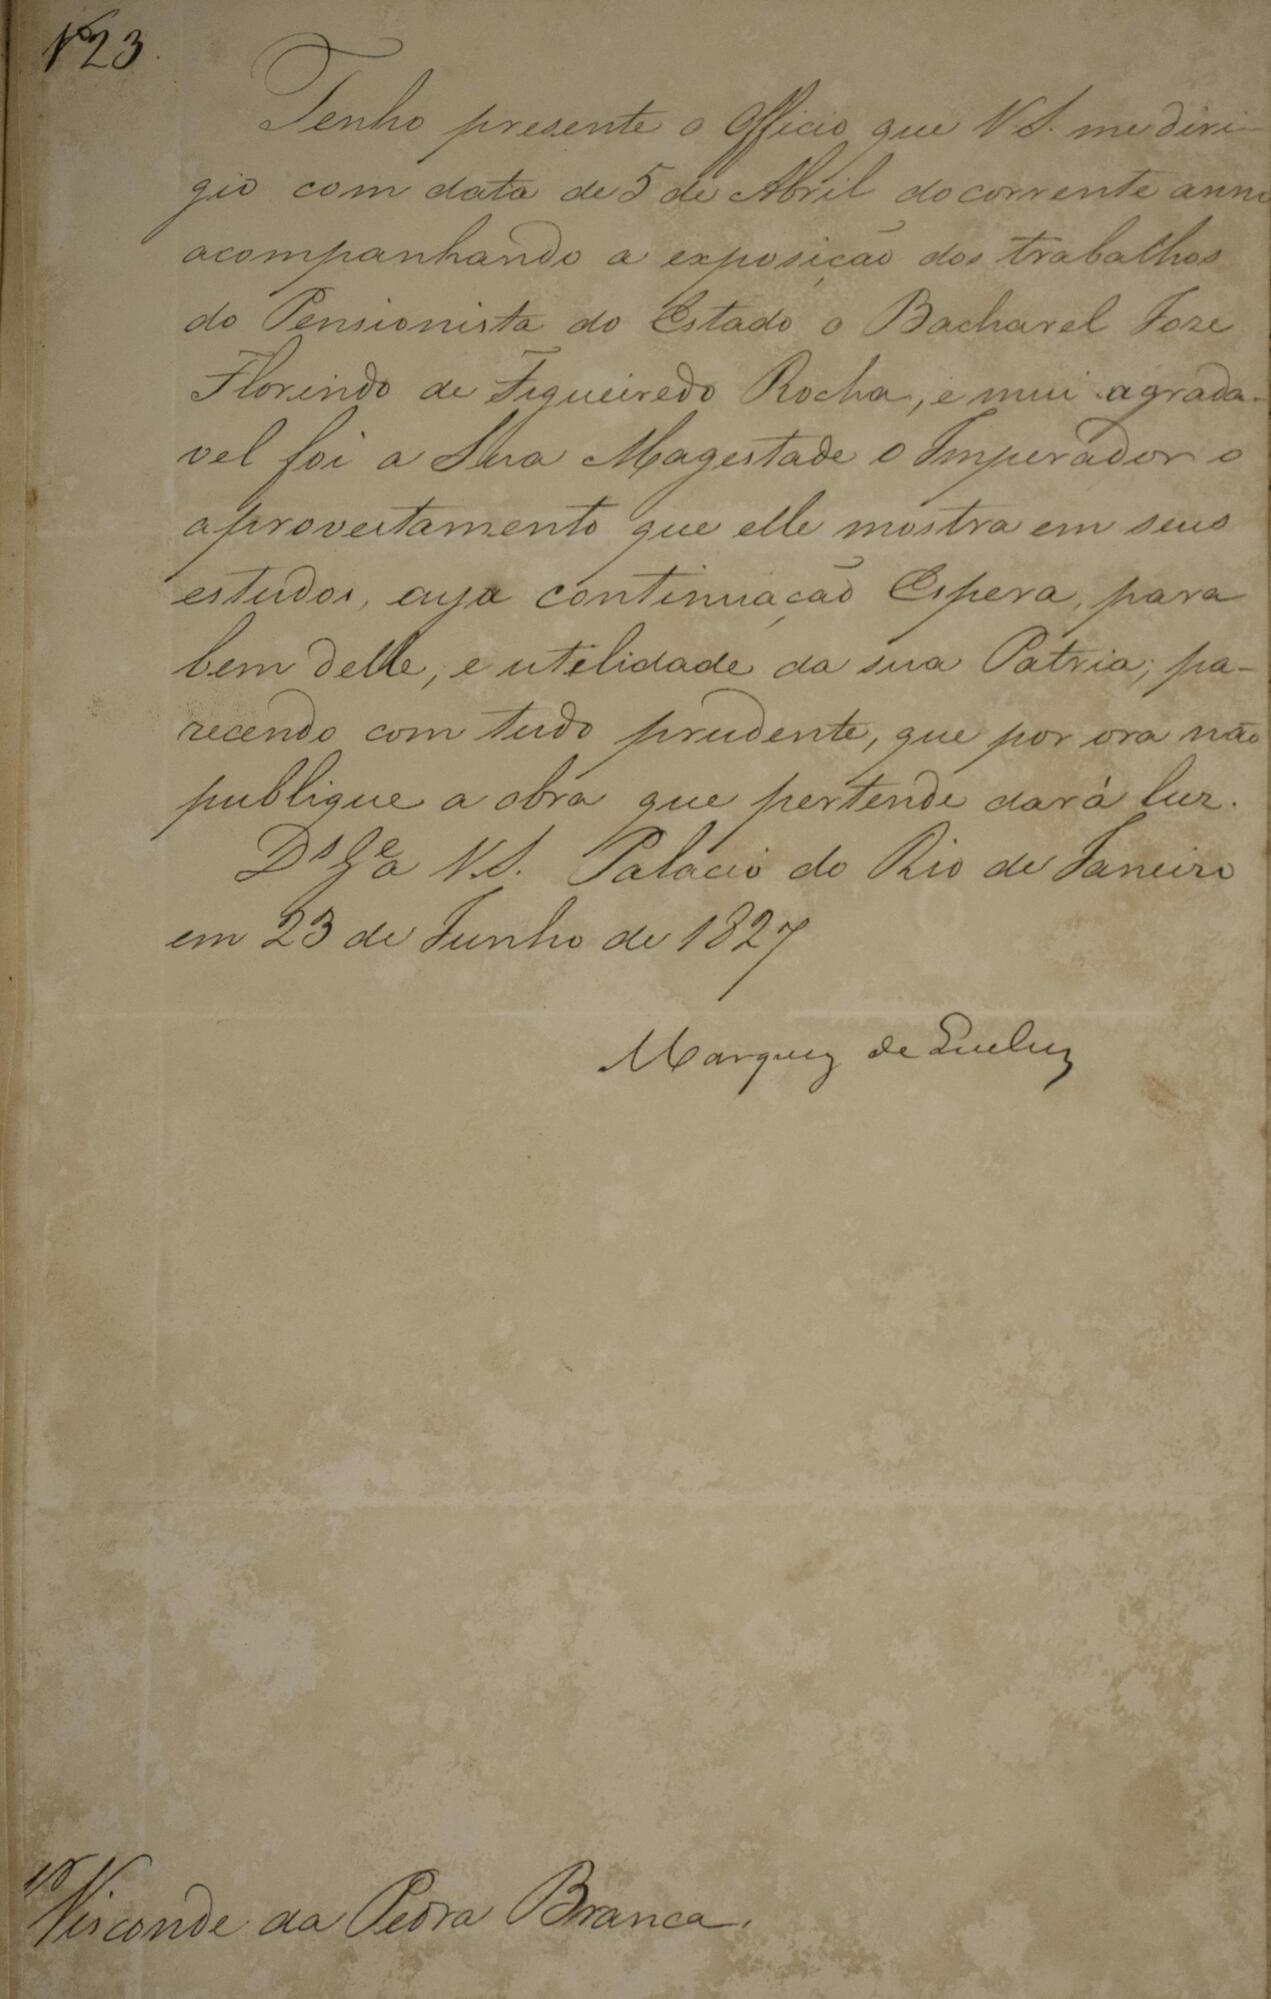 Nº 23.
Tenho presente o Officio que V S. me diri-
gio com data de 5 de Abril do corrente anno
acompanhando a exposição dos trabalhos
do Pensionista do Estado o Bacharel Joze
Florindo de Figueiredo Rocha, e mui agrada-
vel foi a Sua Magestade o Imperador o
aproveitamento que elle mostra em seus
estudos, cuja continuação Espera, para
bem delle, e utelidade da sua Patria; pa-
recendo com tudo prudente, que por ora não
publique a obra que pertende dar á luz.
Ds Ge a V.S. Palacio do Rio de Janeiro
em 23 de Junho de 1827
Marquez de Queluz
Visconde da Pedra Branca.